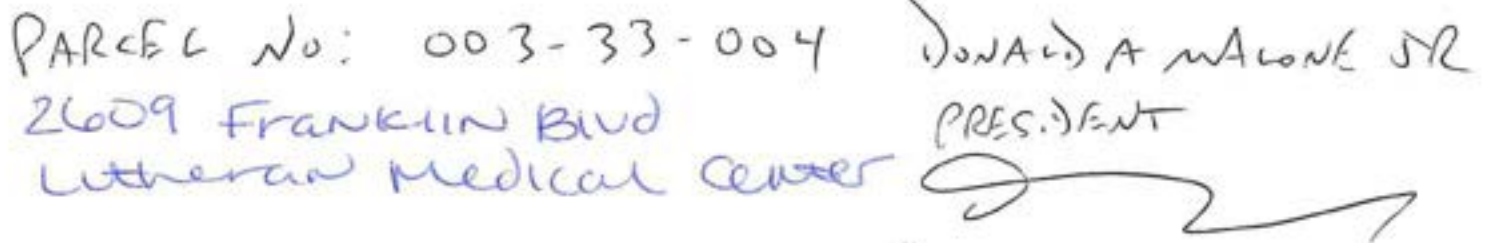 PARCEL No: 003-33-004 DONALD A MALONE JR
2609 Franklin Blvd PRESIDENT
Lutheran Medical Center